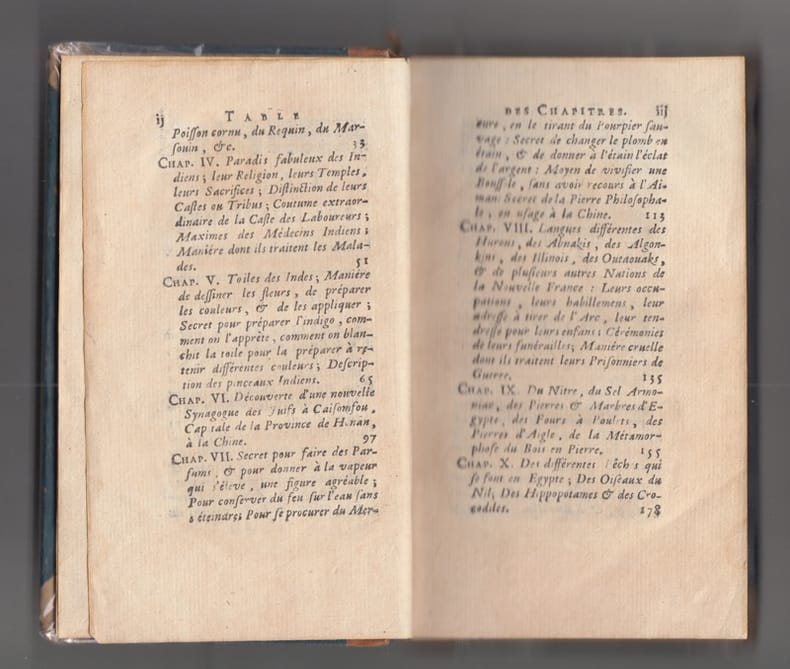 ij TABLE
Poiſſon cornu, du Requin, du Mar-
ſouin, &c. 33
CHAP. IV. Paradis fabuleux des In-
diens; leur Religion, leurs Temples,
leurs Sacrifices; Diſtinction de leurs
Caſtes ou Tribus; Coutume extraor-
dinaire de la Caſte des Laboureurs;
Maximes des Médecins Indiens;
Maniére dont ils traitent les Mala-
des. 51
CHAP. V. Toiles des Indes; Maniére
de deſſiner les fleurs, de préparer
les couleurs, & de les appliquer;
Secret pour préparer l'indigo, com-
ment on l'apprête, comment on blan-
chit la toile pour la préparer à re-
tenir différentes couleurs; Deſcrip-
tion des pinceaux Indiens. 65
CHAP. VI. Découverte d'une nouvelle
Synagogue des Juifs à Caiſomfou,
Capitale de la Province de Honan,
à la Chine. 97
CHAP. VII. Secret pour faire des Par-
fums, & pour donner à la vapeur
qui s'éleve, une figure agréable;
Pour conſerver du feu ſur l'eau ſans
s'éteindre; Pour ſe procurer du Mer-
DES CHAPITRES. iij
cure, en le tirant du Pourpier ſau-
vage: Secret de changer le plomb en
étain, & de donner à l'étain l'éclat
de l'argent: Moyen de vivifier une
Bouſſole, ſans avoir recours à l'Ai-
man: Secret de la Pierre Philoſopha-
le, en uſage à la Chine. 113
CHAP. VIII. Langues différentes des
Hurons, des Abnakis, des Algon-
kins, des Illinois, des Outaouaks,
& de pluſieurs autres Nations de
la Nouvelle France: Leurs occu-
pations, leurs habillemens, leur
adreſſe à tirer de l'Arc, leur ten-
dreſſe pour leurs enfans: Cérémonies
de leurs funérailles; Maniére cruelle
dont ils traitent leurs Priſonniers de
Guerre. 135
CHAP. IX. Du Nitre, du Sel Armo-
niac, des Pierres & Marbres d'E-
gypte, des Fours à Poulets, des
Pierres d'Aigle, de la Métamor-
phoſe du Bois en Pierre. 155
CHAP. X. Des différentes Pêches qui
ſe font en Egypte; Des Oiſeaux du
Nil, Des Hippopotames & des Cro-
codiles. 178